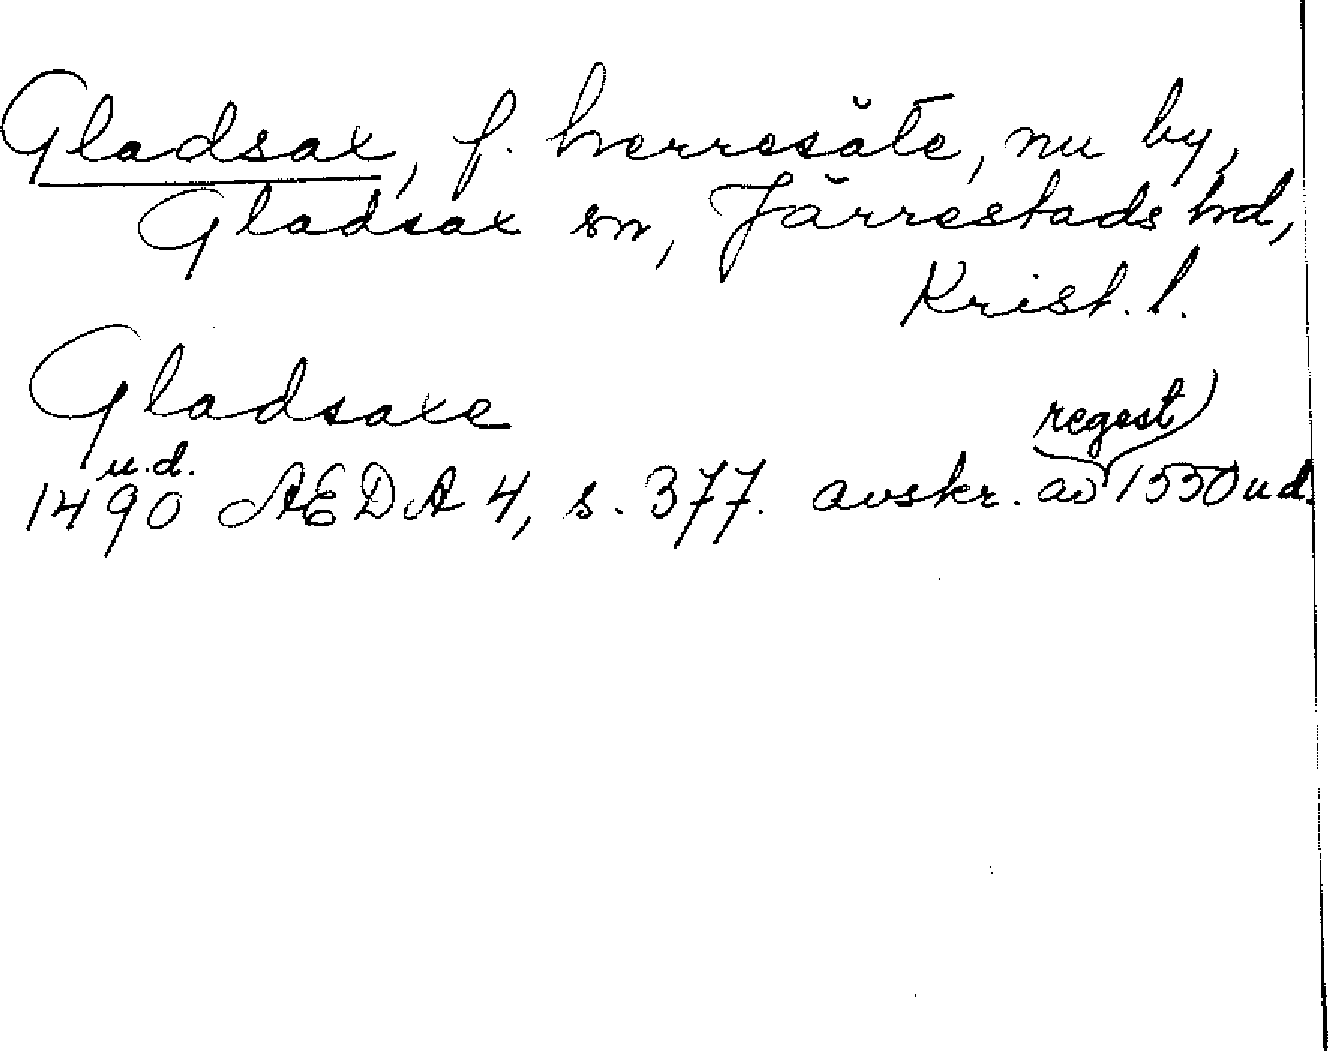 Gladsax, f. herresäte, nu by,
Gladsax sn, Järrestads hd,
Krist. l.
Gladsaxe
u.d.
1490 ÆDA 4, s. 377. avskr. av regest 1550 ud.